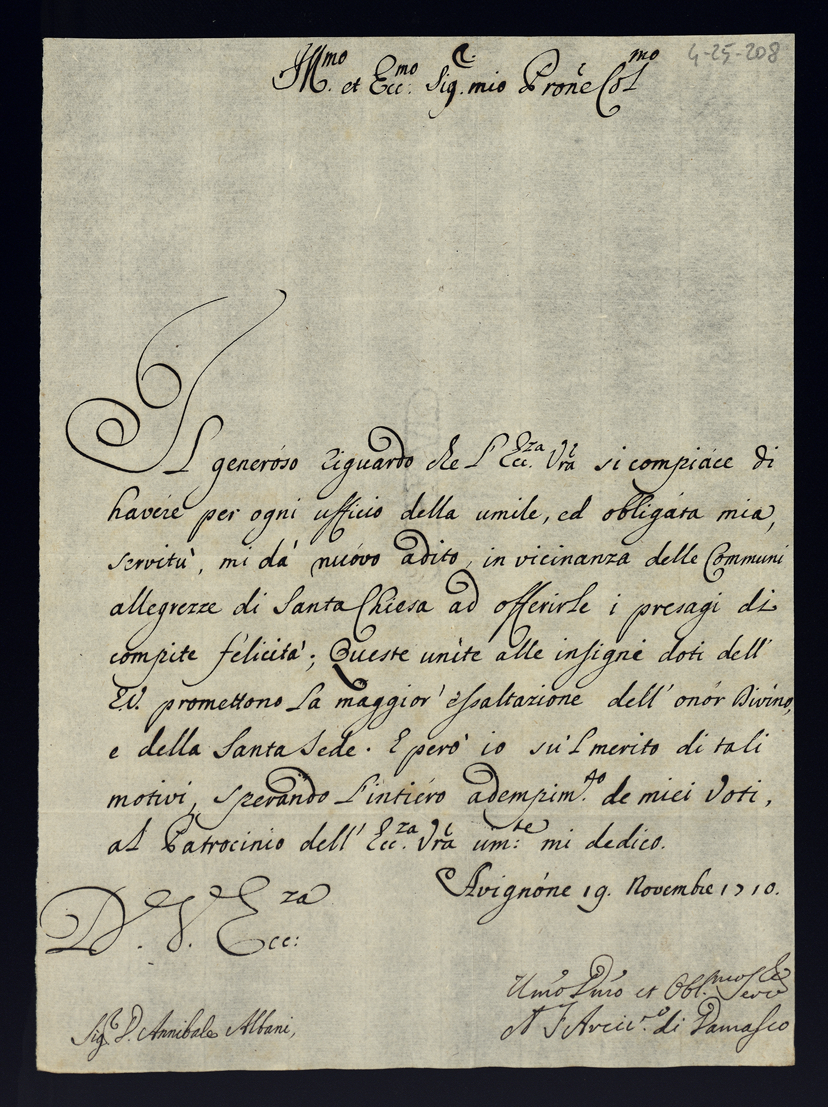 4-25-208
Ill.mo et Ecc.mo Sig.r mio Prone Col.mo
Il generoso riguardo che l'Ecc.za Vra si compiace di
havere per ogni ufficio della umile, ed obligata mia
servitù, mi dà nuovo adito, in vicinanza delle Communi
allegrezze di Santa Chiesa ad offerirle i presagi di
compite felicità; Queste unite alle insigne doti dell'
E.V. promettono la maggior' essaltazione dell' onor Divino,
e della Santa Sede. E però io su'l merito di tali
motivi, sperando l'intiero adempim.to de miei Voti,
al Patrocinio dell' Ecc.za Vra um.te mi dedico.
Avignone 19. Novembre 1710.
D. V. Ecc:za
Umo Dmo et Obl.mo Serre
Sig.r D. Annibale Albani,
N F Arciv.o di Damasco